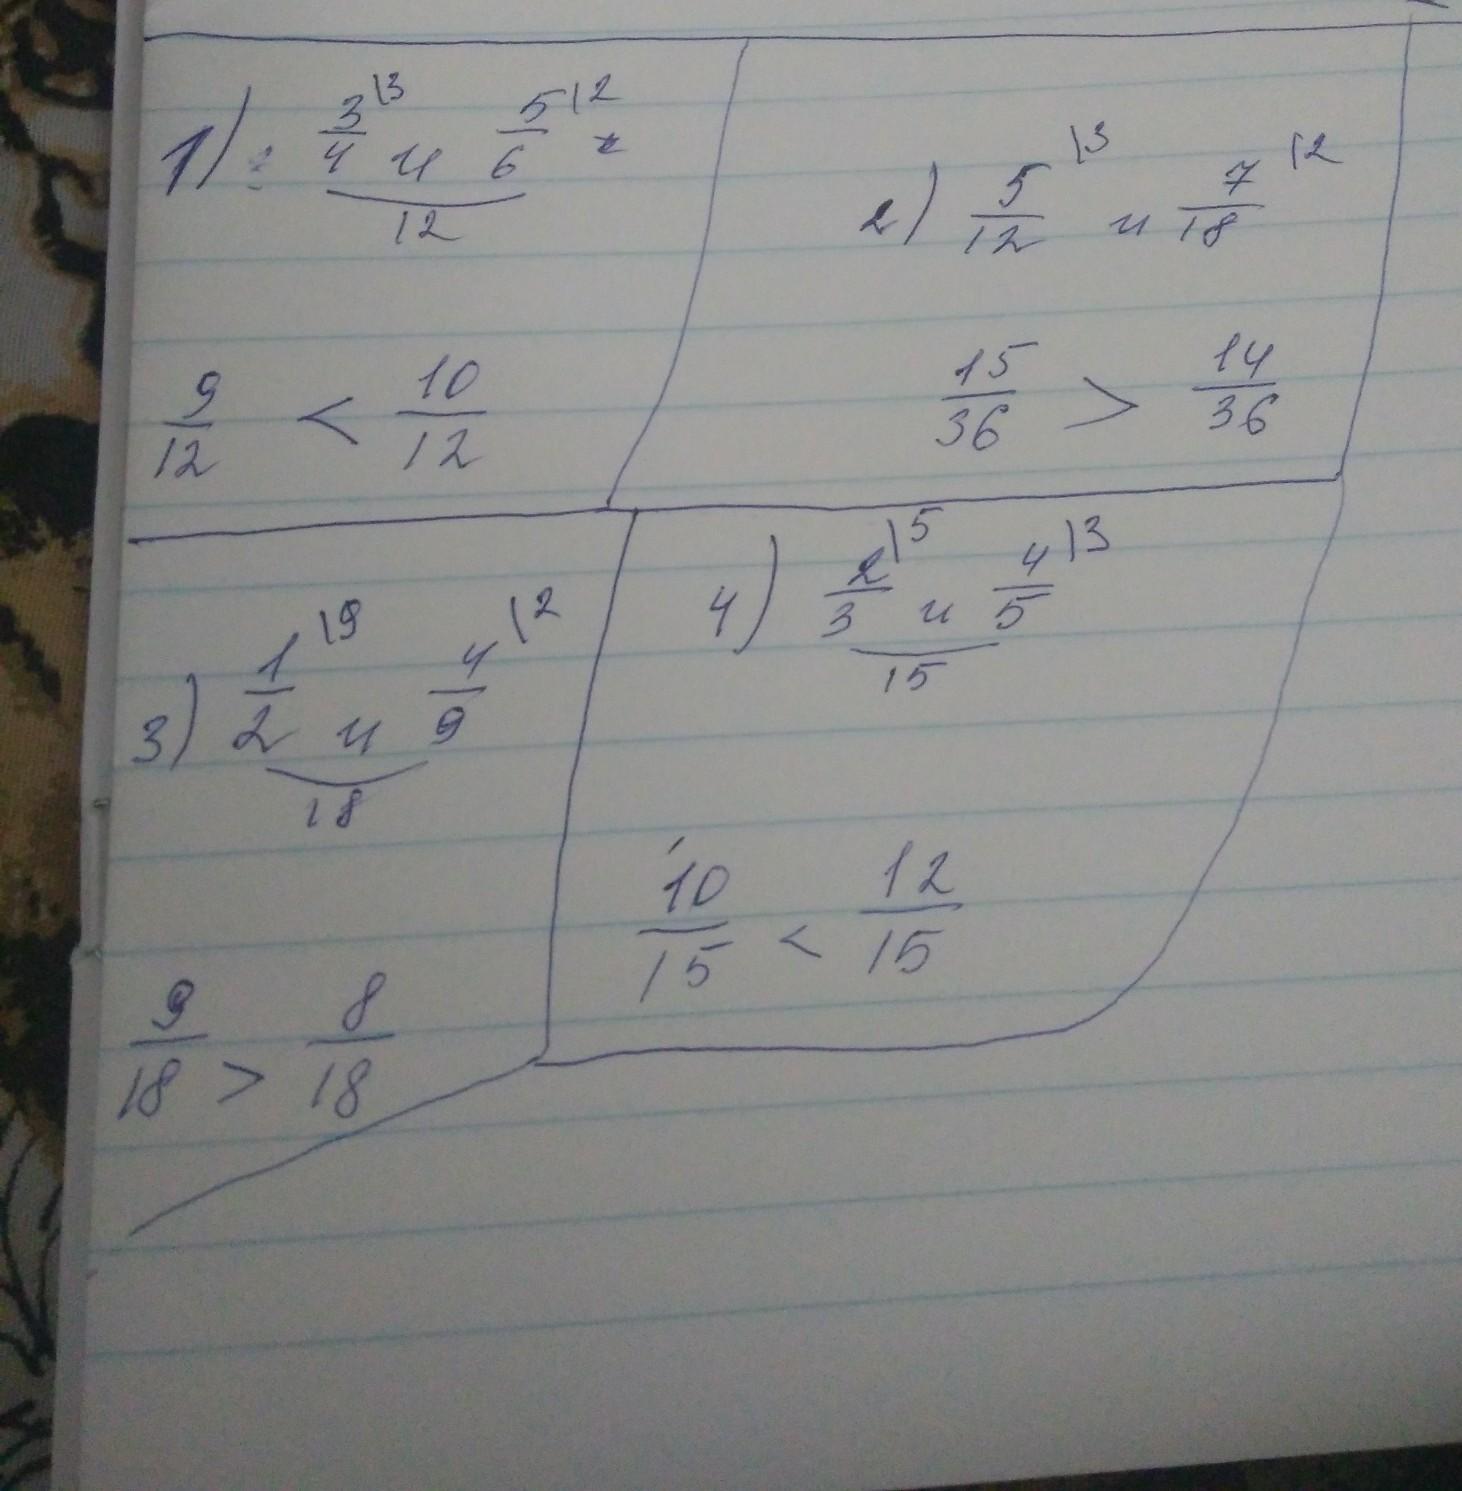 1) 3/4 \3 и 5/6 \2
12
9/12 < 10/12
2) 5/12 \3 и 7/18 \2
15/36 > 14/36
3) 1/2 \9 и 4/9 \2
18
9/18 > 8/18
4) 2/3 \5 и 4/5 \3
15
10/15 < 12/15